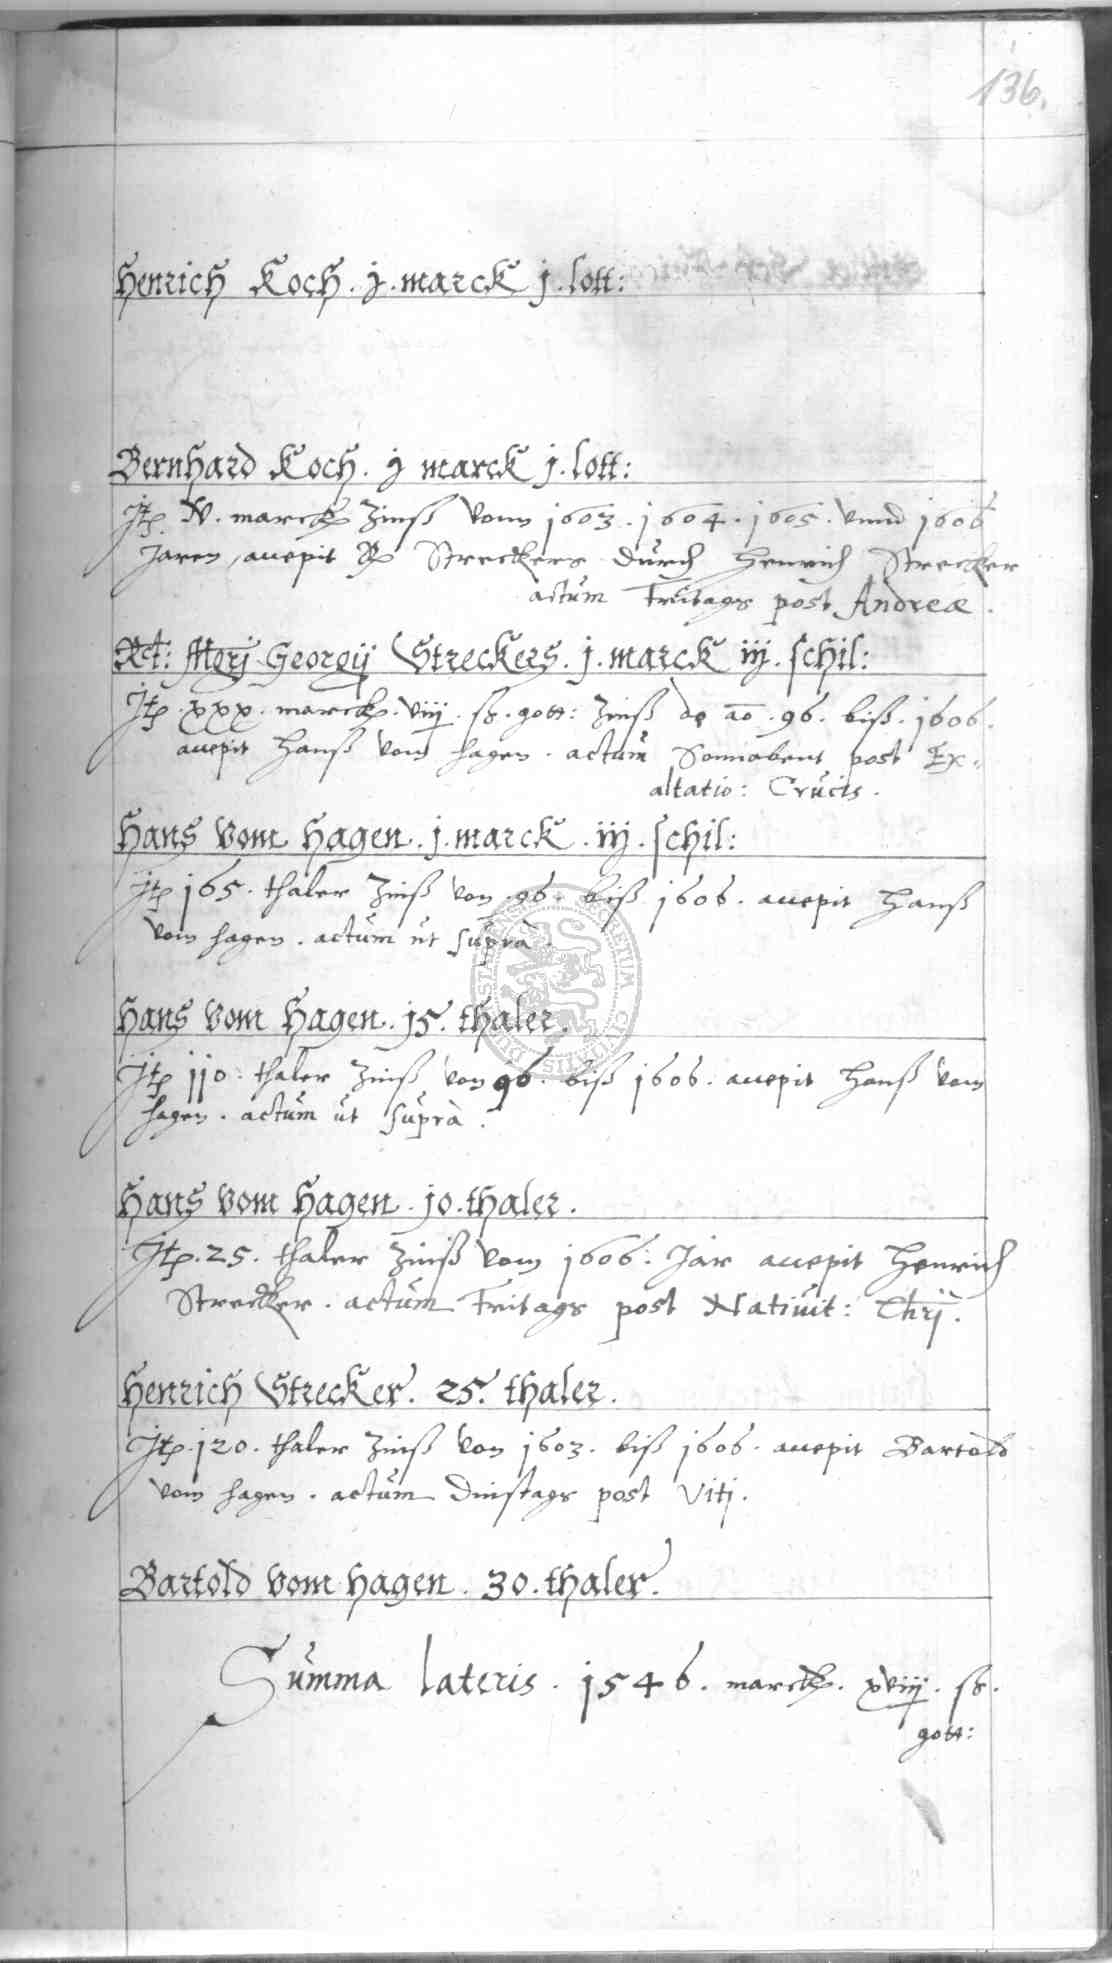 136.
Henrich Koch . j . marck j . lott:
Bernhard Koch . j marck j . lott:
Jtem . marck Zinß vonn 1603 . 1604 . 1605 . vnnd 1606
Jaren, accepit Streckers durch Henrich Strecker
actum Freitags post Andreæ .
Rct: Mgrj Georgij Streckers . j . marck iij . schil:
Jtem . xxx . marck . viij . ß . gott: Zinß de ao . 96 . biß . 1606 .
accepit Hanß vom hagen . actum Sonnabent post Ex=
altatio: Crucis .
Hans vom Hagen . j . marck . iij . schil:
Jtem 165 . thaler Zinß von . 96 . biß 1606 . accepit Hanß
vom hagen . actum ut suprà .
Hans vom Hagen . 15 . thaler .
Jtem 110 . thaler Zinß von 96 . biß 1606 . accepit Hanß vom
hagen . actum ut suprà .
Hans vom Hagen . 10 . thaler .
Jtem . 25 . thaler Zinß vom 1606 . Jar accepit Henrich
Strecker . actum Fritags post Nativit: Chrj .
Henrich Strecker . 25 . thaler .
Jtem . 120 . thaler Zinß von 1603 . biß 1606 . accepit Bartold
vom hagen . actum Dinstags post Viti .
Bartold vom hagen . 30 . thaler .
Summa lateris . 1546 . marck . xviij . ß .
gott: